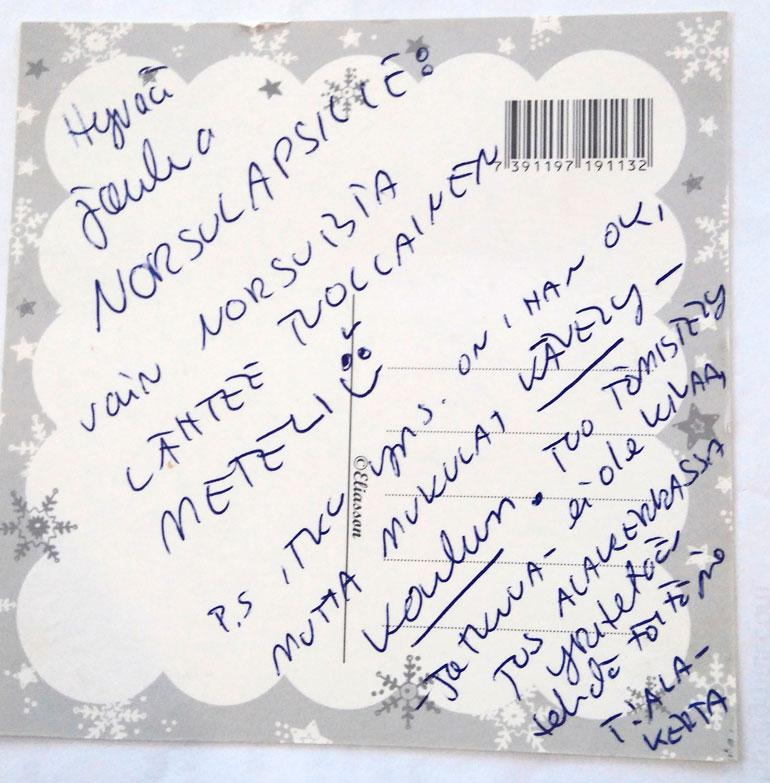 Hyvää
Joulua
NORSULAPSILLE!
vain NORSUISTA
LÄHTEE TUOLLAINEN
METELI
P.S ITKU yms. ON IHAN OK,
MUTTA MUKULAT KÄVELY-
kouluun. TUO TÖMISTELY
-JATKUVA- ei ole KIVAA,
JOS ALAKERRASSA
yritetään
tehdä töitä
T: ALA-
KERTA
©Eliasson
7 391197 191132